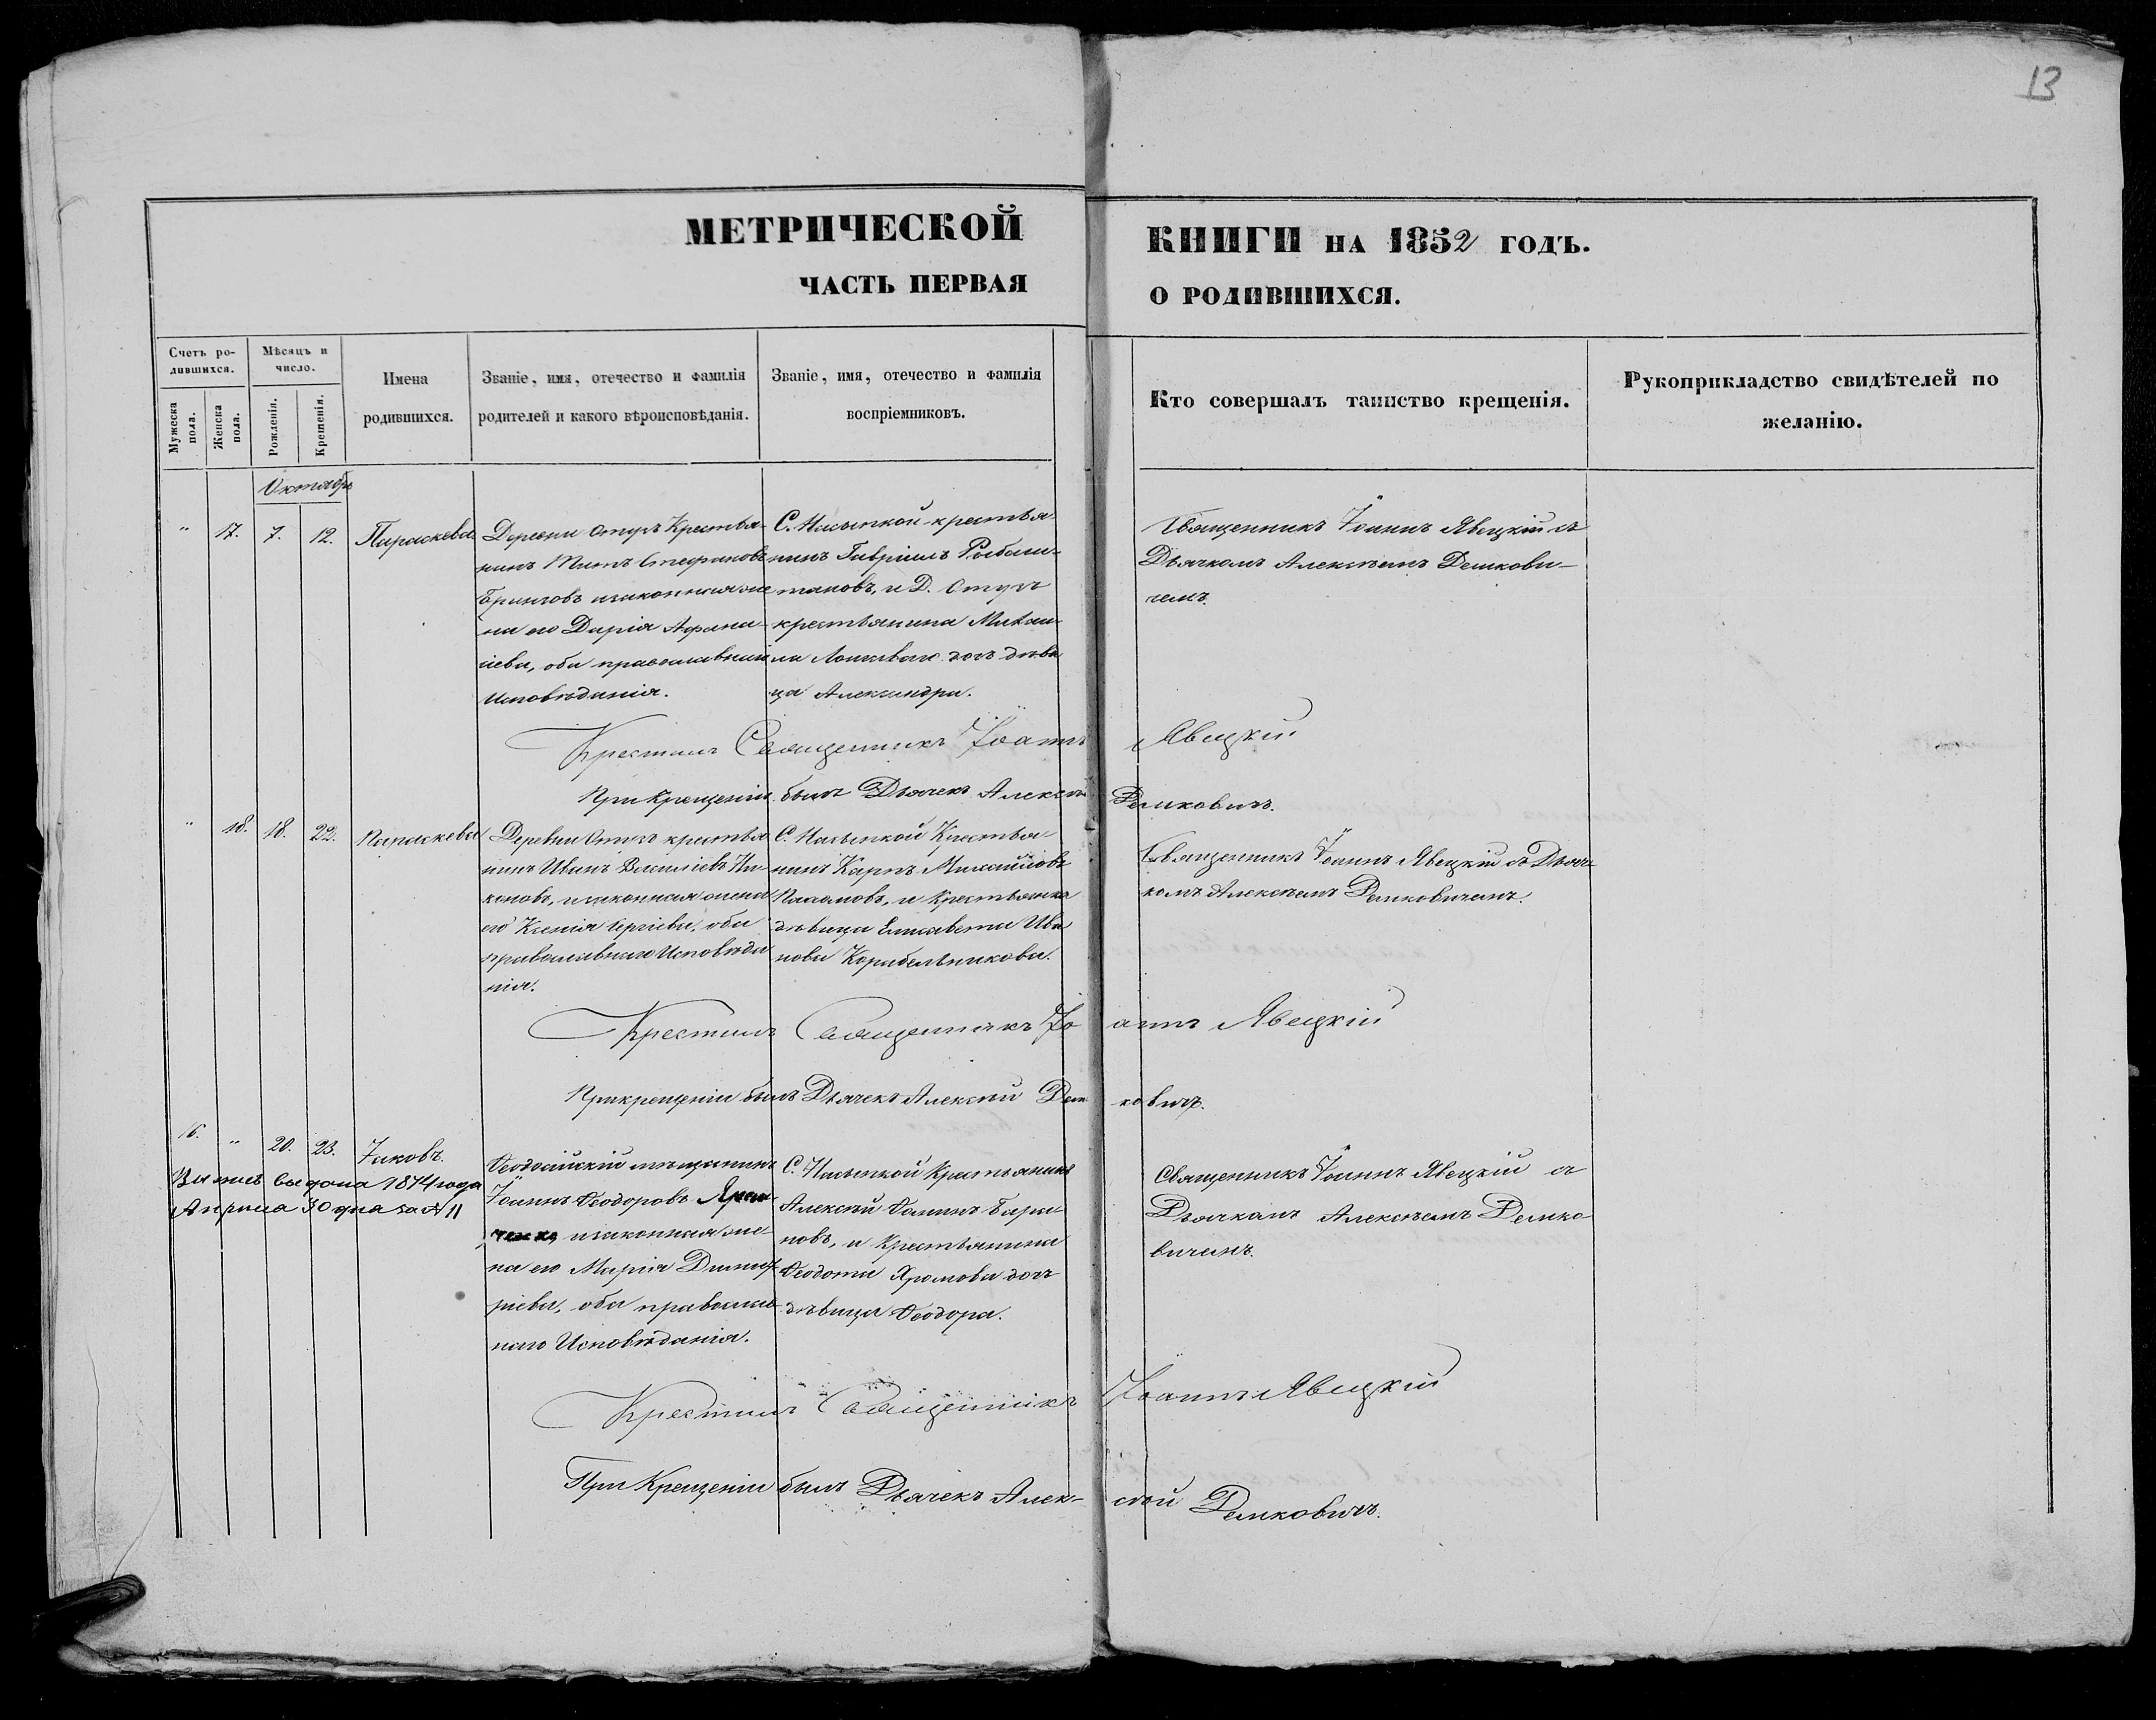 13
МЕТРИЧЕСКОЙ
КНИГИ НА 1852 ГОДЪ.
ЧАСТЬ ПЕРВАЯ
О РОДИВШИХСЯ.
Счетъ ро-
дившихся.
Мужеска пола.
Женска пола.
Мѣсяцъ и
число.
Рожденія.
Крещенія.
Имена
родившихся.
Званіе, имя, отечество и фамилія
родителей и какого вѣроисповѣданія.
Званіе, имя, отечество и фамилія
воспріемниковъ.
Кто совершалъ таинство крещенія.
Рукоприкладство свидѣтелей по
желанію.
Октябрь
" 17. 7. 12. Параскева
Деревни Отузъ Крестья-
нинъ Титъ Стефановъ
и законная же
на его Дарія Афана-
сіева, оба православнаго
Исповѣданія.
С. Насыпкой крестья
нинъ Гавріилъ
и Д. Отузъ
крестьянина Михаи-
ла дочь дѣви
ца Александра.
Священникъ Іоаннъ Явецкій съ
Дьячкомъ Алексѣемъ Демкови-
чемъ.
Крестилъ Священникъ Іоаннъ Явецкій
При крещеніи былъ Дьячекъ Алексѣй Демковичъ.
" 18. 18. 22. Параскева
Деревни Отузъ крестья
нинъ Иванъ Василіевъ Ни-
коновъ, и законная жена
его Ксенія Сергіева, оба
православнаго Исповѣда
нія.
С. Насыпкой Крестья-
нинъ Карпъ Михайловъ
Пахомовъ, и Крестьянка
дѣвица Елисавета Ива
нова Корабельникова.
Священникъ Іоаннъ Явецкій съ Дьяч
комъ Алексѣемъ Демковичемъ.
Крестилъ Священникъ Іоаннъ Явецкій
При крещеніи былъ Дьячекъ Алексѣй Демковичъ.
16. " 20. 23. Іаковъ.
Выпись выдана 1874 года
Апрѣля 30 дня за № 11
Ѳеодосійскій мѣщанинъ
Іоаннъ Ѳеодоровъ
и законная же-
на его Марія Димит-
ріева, оба православ
наго Исповѣданія.
С. Насыпкой Крестьянинъ
Алексѣй Ѳоминъ Бара-
новъ, и Крестьянина
Ѳеодота Хромова дочь
дѣвица Ѳеодора.
Священникъ Іоаннъ Явецкій съ
Дьячкомъ Алексѣемъ Демко
вичемъ.
Крестилъ Священникъ Іоаннъ Явецкій
При Крещеніи былъ Дьячекъ Алек-сѣй Демковичъ.